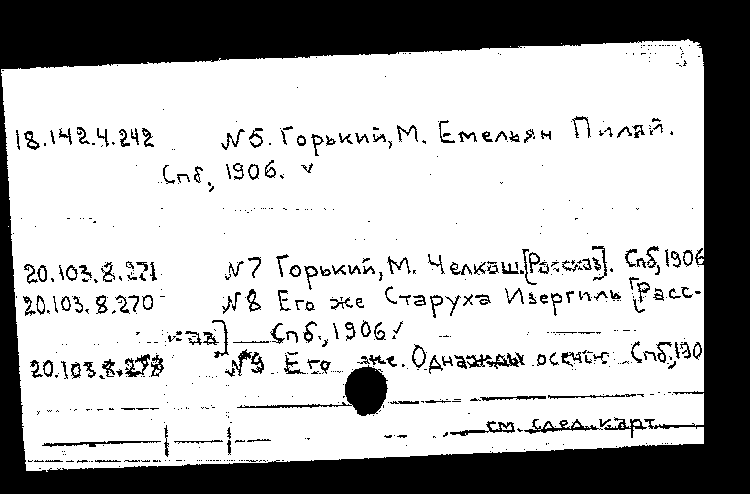 18.142.4.242 №5. Горький, М. Емельян Пиляй.
Спб, 1906. v
20.103.8.271 №7 Горький, М. Челкаш. [Рассказ]. Спб, 1906
20.103.8.270 №8 Его же Старуха Изергиль [Расс-
каз] Спб., 1906.
20.103.8.273 №9 Его же. Однажды осенью Спб, 190
см. след. карт.